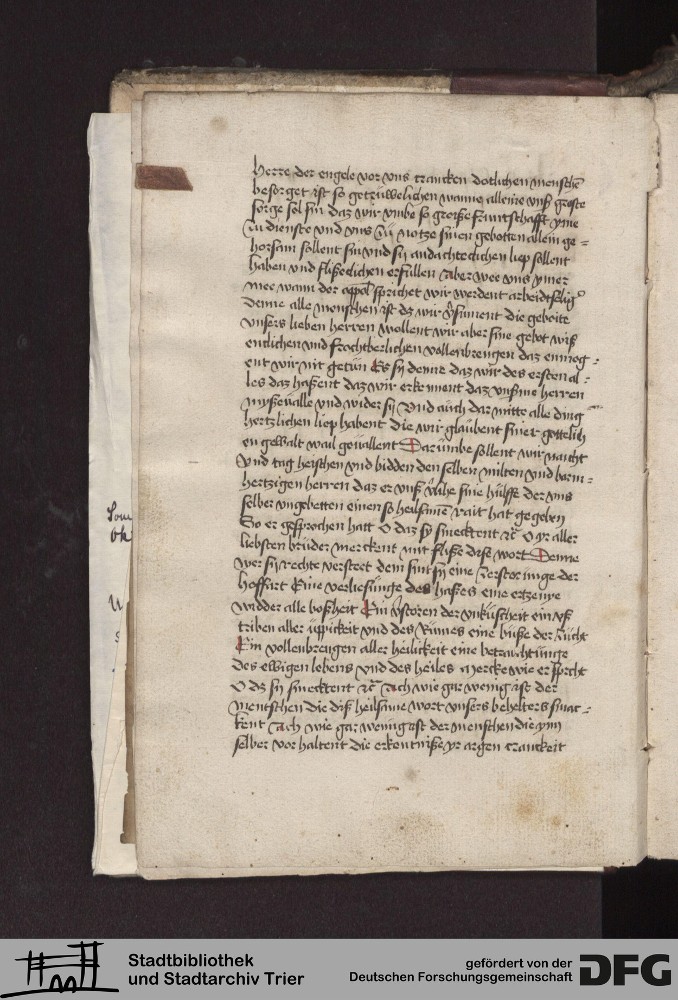 herre der engele vor vns crancken dotlichen mensche
besorget ist so getruwelichen wanne alleine vnß groste
sorge sol sin daz wir vmbe so groiße fruntschafft yme
zu dienste vnd vns zu notze sinen gebotten allein ge=
horsam sollent sin vnd sy andachteclichen liep sollent
haben vnd flißeclichen erfullen aber wee vns ymer
mee wann der appol sprichet wir werdent arbeidtselig
denne alle menschen ist dz wir vsument die geboite
vnsers lieben herren wollent wir aber sine gebot wiß
entlichen vnd frochtberlichen vollenbrengen daz enmog=
ent wir nit getun Es sy denne daz wir des ersten al=
les daz haßent daz wir erkennent daz vnßme herren
myßeualle vnd wider sy Vnd auch dar mitte alle ding
hertzlichen liep habent die wir glaubent siner gottelich
en gewalt wail geuallent Darumbe sollent wir nacht
Vnd tag heischen vnd bidden den selben milten vnd barm=
hertzigen herren daz er vnß v'lihe sine hulffe der vns
selber vngebetten einen so heilsame rait hat gegeben
So er gesprochen hatt O daz sy smecktent ec O yr aller
liebsten bruder merckent mit fliße dise wort Denne
wer sy rechte versteet dem sint sy eine zerstorunge der
hoffart Eine verliesunge des haßes eine ertzenye
widder alle boßheit Ein v'storen der vnkuscheit ein vß
triben aller uppickeit vnd des Rumes eine buße der zucht
Ein vollenbrengen aller heilickeit eine betrachtunge
des ewigen lebens vnd des heiles mercke wie er spricht
O dz sy smecktent ec ach wie gar wenig ist der
mentschen die diß heilsame wort vnsers behelters smac=
kent ach wie gar wenig ist der menschen die ynn
selber vor haltent die erkentniße yr argen cranckeit
Stadtbibliothek
und Stadtarchiv Trier
gefördert von der
Deutschen Forschungsgemeinschaft
DFG